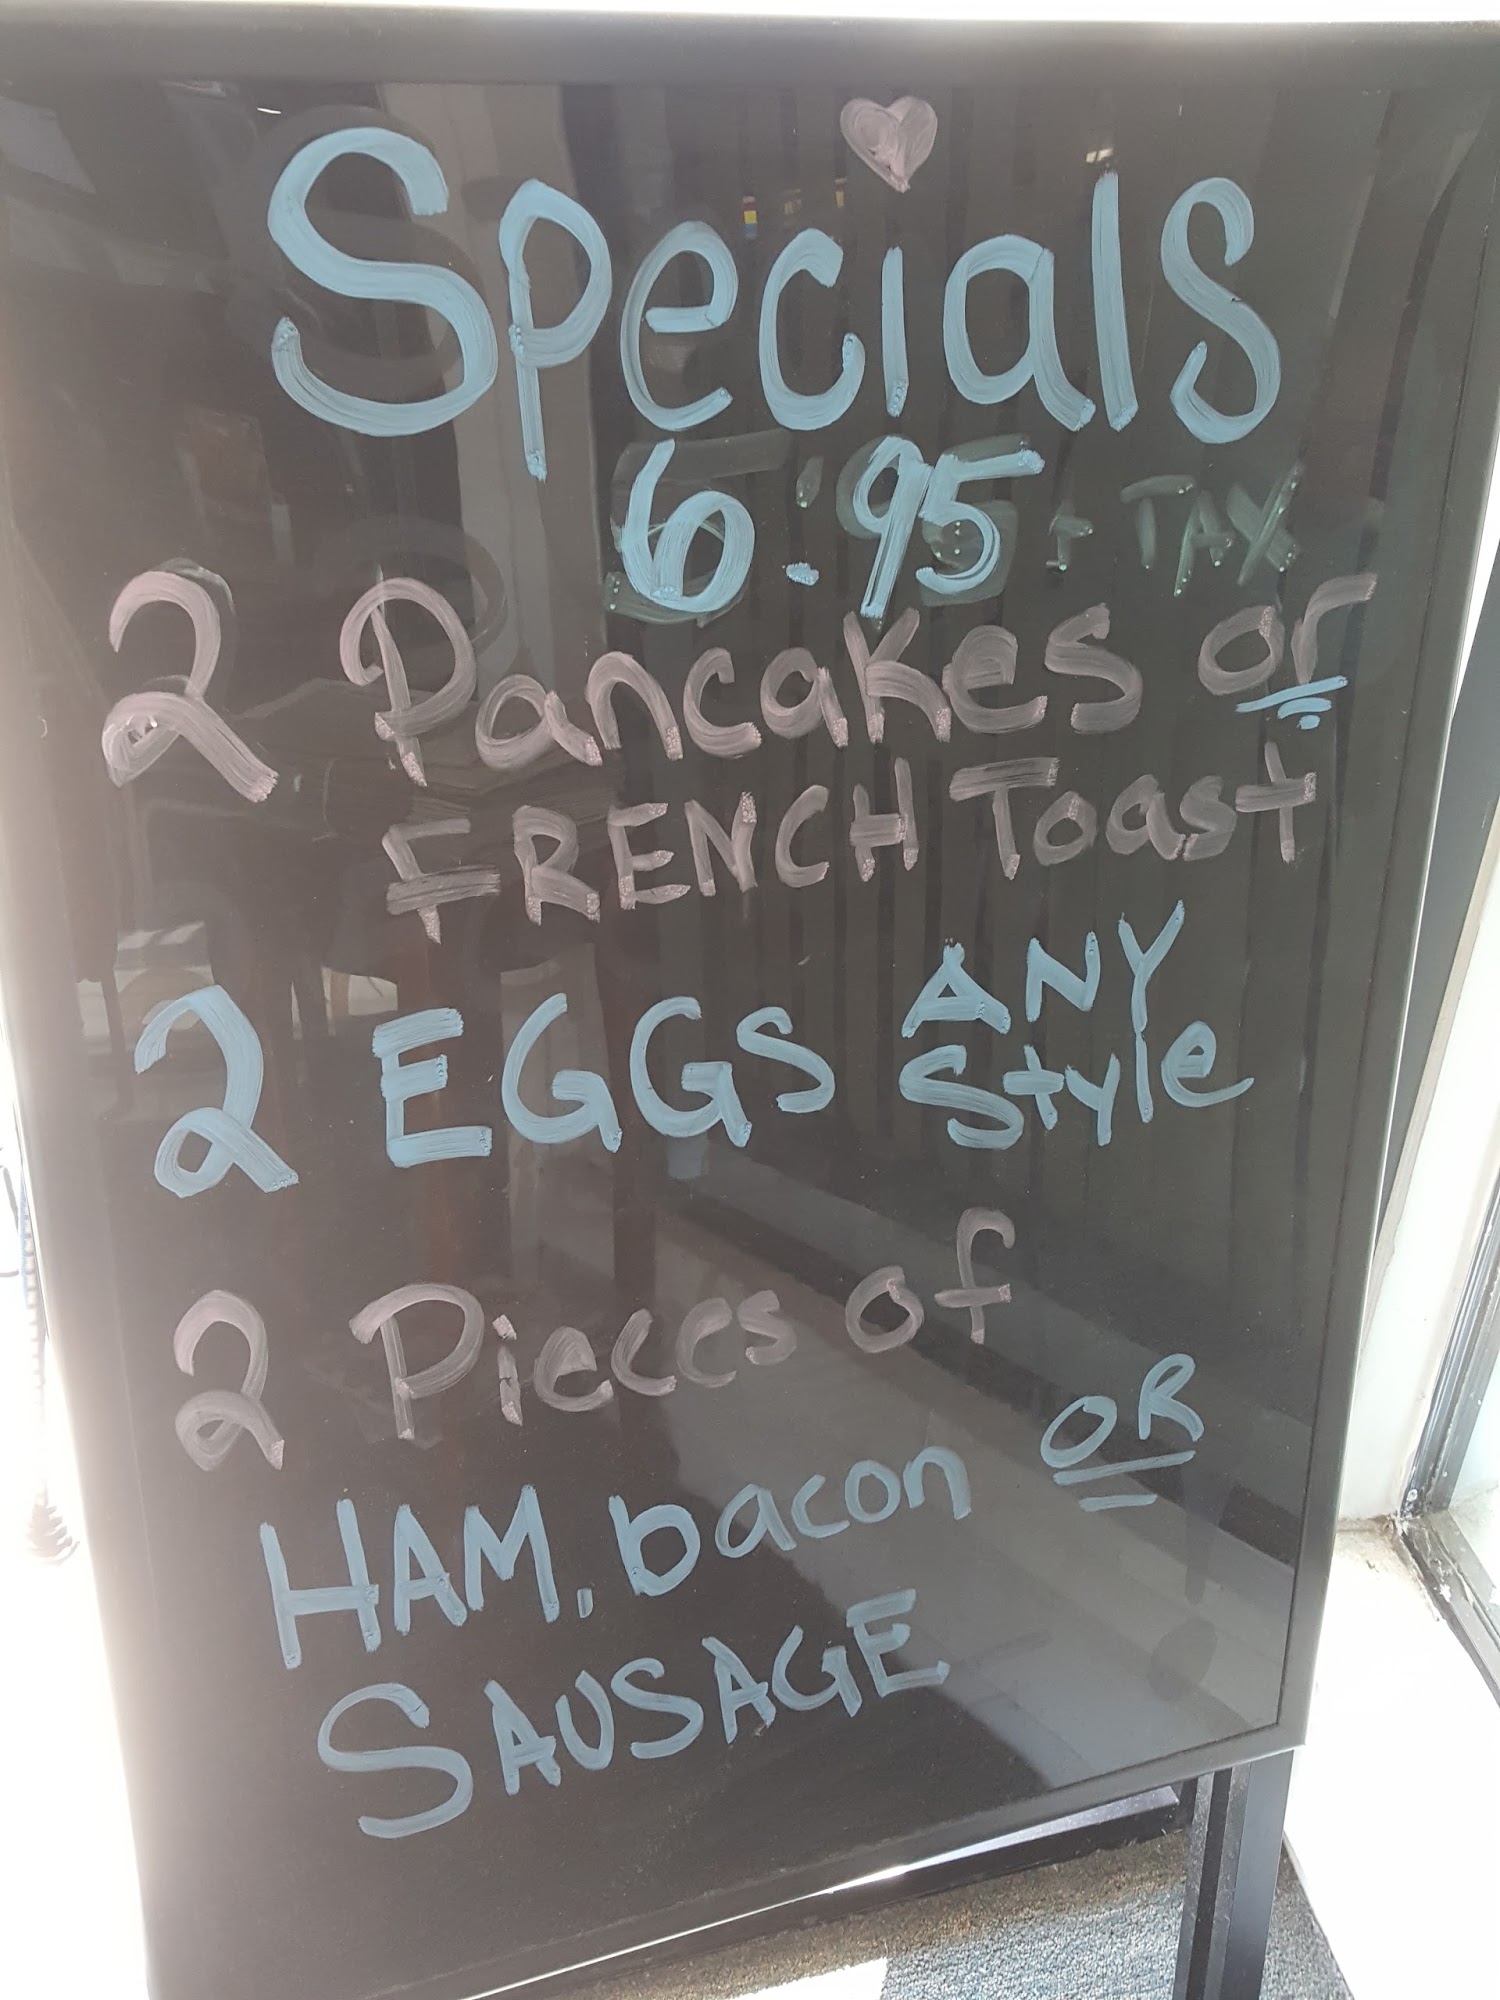 Specials
6.95 + TAX
2 Pancakes or
FRENCH Toast
2 EGGS ANY
Style
2 Pieces of
HAM, bacon OR
SAUSAGE